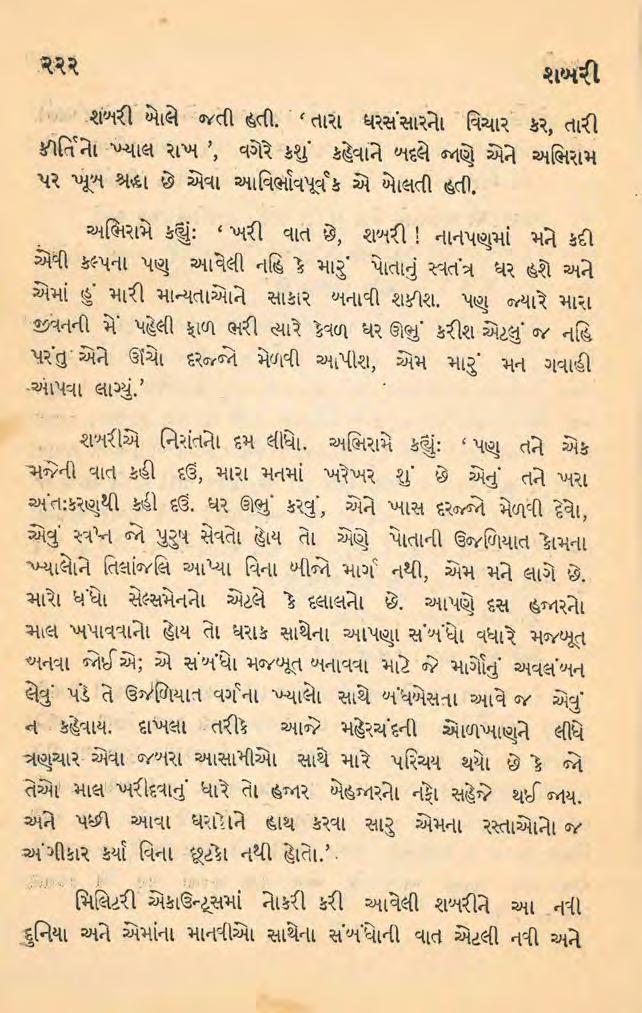 ૨૨૨
શબરી
શબરી બોલે જતી હતી. ‘ તારા ઘરસંસારનો વિચાર કર, તારી
કીર્તિનો ખ્યાલ રાખ ’, વગેરે કશું કહેવાને બદલે જાણે એને અભિરામ
પર ખૂબ શ્રદ્ધા છે એવા આવિર્ભાવપૂર્વક એ બોલતી હતી.
અભિરામે કહ્યું: ‘ ખરી વાત છે, શબરી ! નાનપણમાં મને કદી
એવી કલ્પના પણ આવેલી નહિ કે મારું પોતાનું સ્વતંત્ર ઘર હશે અને
એમાં હું મારી માન્યતાઓને સાકાર બનાવી શકીશ. પણ જ્યારે મારા
જીવનની મેં પહેલી ફાળ ભરી ત્યારે કેવળ ઘર ઊભું કરીશ એટલું જ નહિ
પરંતુ એને ઊંચો દરજ્જો મેળવી આપીશ, એમ મારું મન ગવાહી
આપવા લાગ્યું.’
શબરીએ નિરાંતનો દમ લીધો. અભિરામે કહ્યું: ‘ પણ તને એક
મજેની વાત કહી દઉં, મારા મનમાં ખરેખર શું છે એનું તને ખરા
અંતઃકરણથી કહી દઉં. ઘર ઊભું કરવું, એને ખાસ દરજ્જો મેળવી દેવો,
એવું સ્વપ્ન જો પુરુષ સેવતો હોય તો એણે પોતાની ઉજળિયાત કોમના
ખ્યાલોને તિલાંજલિ આપ્યા વિના બીજો માર્ગ નથી, એમ મને લાગે છે.
મારો ધંધો સેલ્સમેનનો એટલે કે દલાલનો છે. આપણે દસ હજારનો
માલ ખપાવવાનો હોય તો ઘરાક સાથેના આપણા સંબંધો વધારે મજબૂત
બનવા જોઈએ; એ સંબંધો મજબૂત બનાવવા માટે જે માર્ગોનું અવલંબન
લેવું પડે તે ઉજળિયાત વર્ગના ખ્યાલો સાથે બંધબેસતા આવે જ એવું
ન કહેવાય. દાખલા તરીકે આજે મહેરચંદની ઓળખાણને લીધે
ત્રણચાર એવા જબરા આસામીઓ સાથે મારે પરિચય થયો છે કે જો
તેઓ માલ ખરીદવાનું ધારે તો હજાર બેહજારનો નફો સહેજે થઈ જાય.
અને પછી આવા ઘરાકોને હાથ કરવા સારુ એમના રસ્તાઓનો જ
અંગીકાર કર્યા વિના છૂટકો નથી હોતો.’
મિલિટરી એકાઉન્ટ્સમાં નોકરી કરી આવેલી શબરીને આ નવી
દુનિયા અને એમાંના માનવીઓ સાથેના સંબંધોની વાત એટલી નવી અને